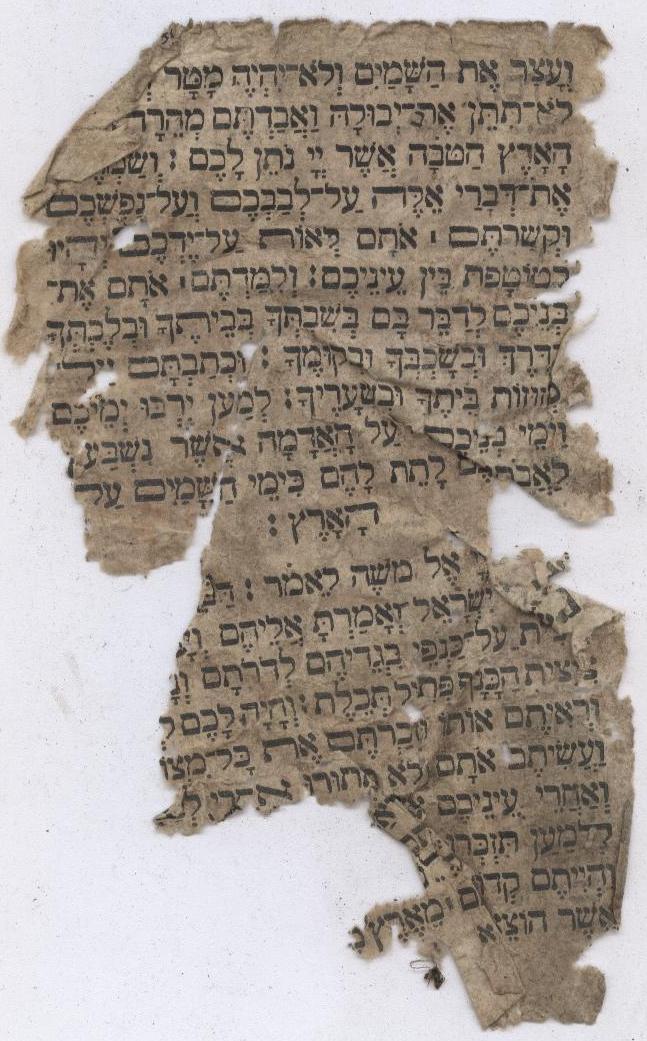 וְעָצַר אֶת הַשָּׁמַיִם וְלֹא־יִהְיֶה מָטָר
לֹא־תִתֵּן אֶת־יְבוּלָהּ וַאֲבַדְתֶּם מְהֵרָה
הָאָרֶץ הַטֹּבָה אֲשֶׁר יְיָ נֹתֵן לָכֶם : וְשַׂמְ
אֶת־דְּבָרַי אֵלֶּה עַל־לְבַבְכֶם וְעַל־נַפְשְׁכֶם
וּקְשַׁרְתֶּם ׀ אֹתָם לְאוֹת עַל־יֶדְכֶם וְהָיוּ
לְטוֹטָפֹת בֵּין עֵינֵיכֶם : וְלִמַּדְתֶּם ׀ אֹתָם אֶת־
בְּנֵיכֶם לְדַבֵּר בָּם בְּשִׁבְתְּךָ בְּבֵיתֶךָ וּבְלֶכְתְּךָ
בַדֶּרֶךְ וּבְשָׁכְבְּךָ וּבְקוּמֶךָ : וּכְתַבְתָּם
מְזוּזוֹת בֵּיתֶךָ וּבִשְׁעָרֶיךָ : לְמַעַן יִרְבּוּ יְמֵיכֶם
וִימֵי בְנֵיכֶם עַל הָאֲדָמָה אֲשֶׁר נִשְׁבַּע
לַאֲבֹתֵיכֶם לָתֵת לָהֶם כִּימֵי הַשָּׁמַיִם עַל
הָאָרֶץ :
אֶל מֹשֶׁה לֵּאמֹר : דַּבֵּ
יִשְׂרָאֵל וְאָמַרְתָּ אֲלֵיהֶם וְעָ
עַל־כַּנְפֵי בִגְדֵיהֶם לְדֹרֹתָם וְנָ
צִיצִת הַכָּנָף פְּתִיל תְּכֵלֶת : וְהָיָה לָכֶם לְ
וּרְאִיתֶם אוֹתוֹ וּזְכַרְתֶּם אֶת כָּל־מִצְוֹ
וַעֲשִׂיתֶם אֹתָם וְלֹא תָתוּרוּ אַחֲרֵי לְבַ
וְאַחֲרֵי עֵינֵיכֶם
לְמַעַן תִּזְכְּרוּ
וִהְיִיתֶם קְדֹ
אֲשֶׁר הוֹצֵא מֵאֶרֶץ